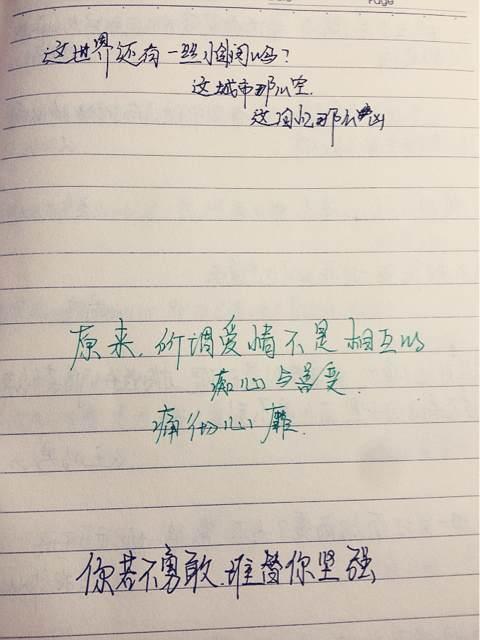 Page
这世界还有一丝怜悯吗?
这城市那么空.
这回忆那么凶
原来,所谓爱情不是相互的
痴心与善受.
痛彻心.
你若不勇敢.谁替你坚强